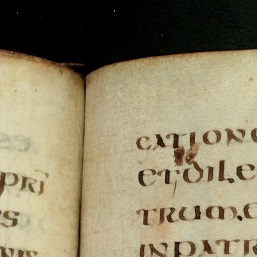 pri
s
nis
catione
et dile
trum e
in patr